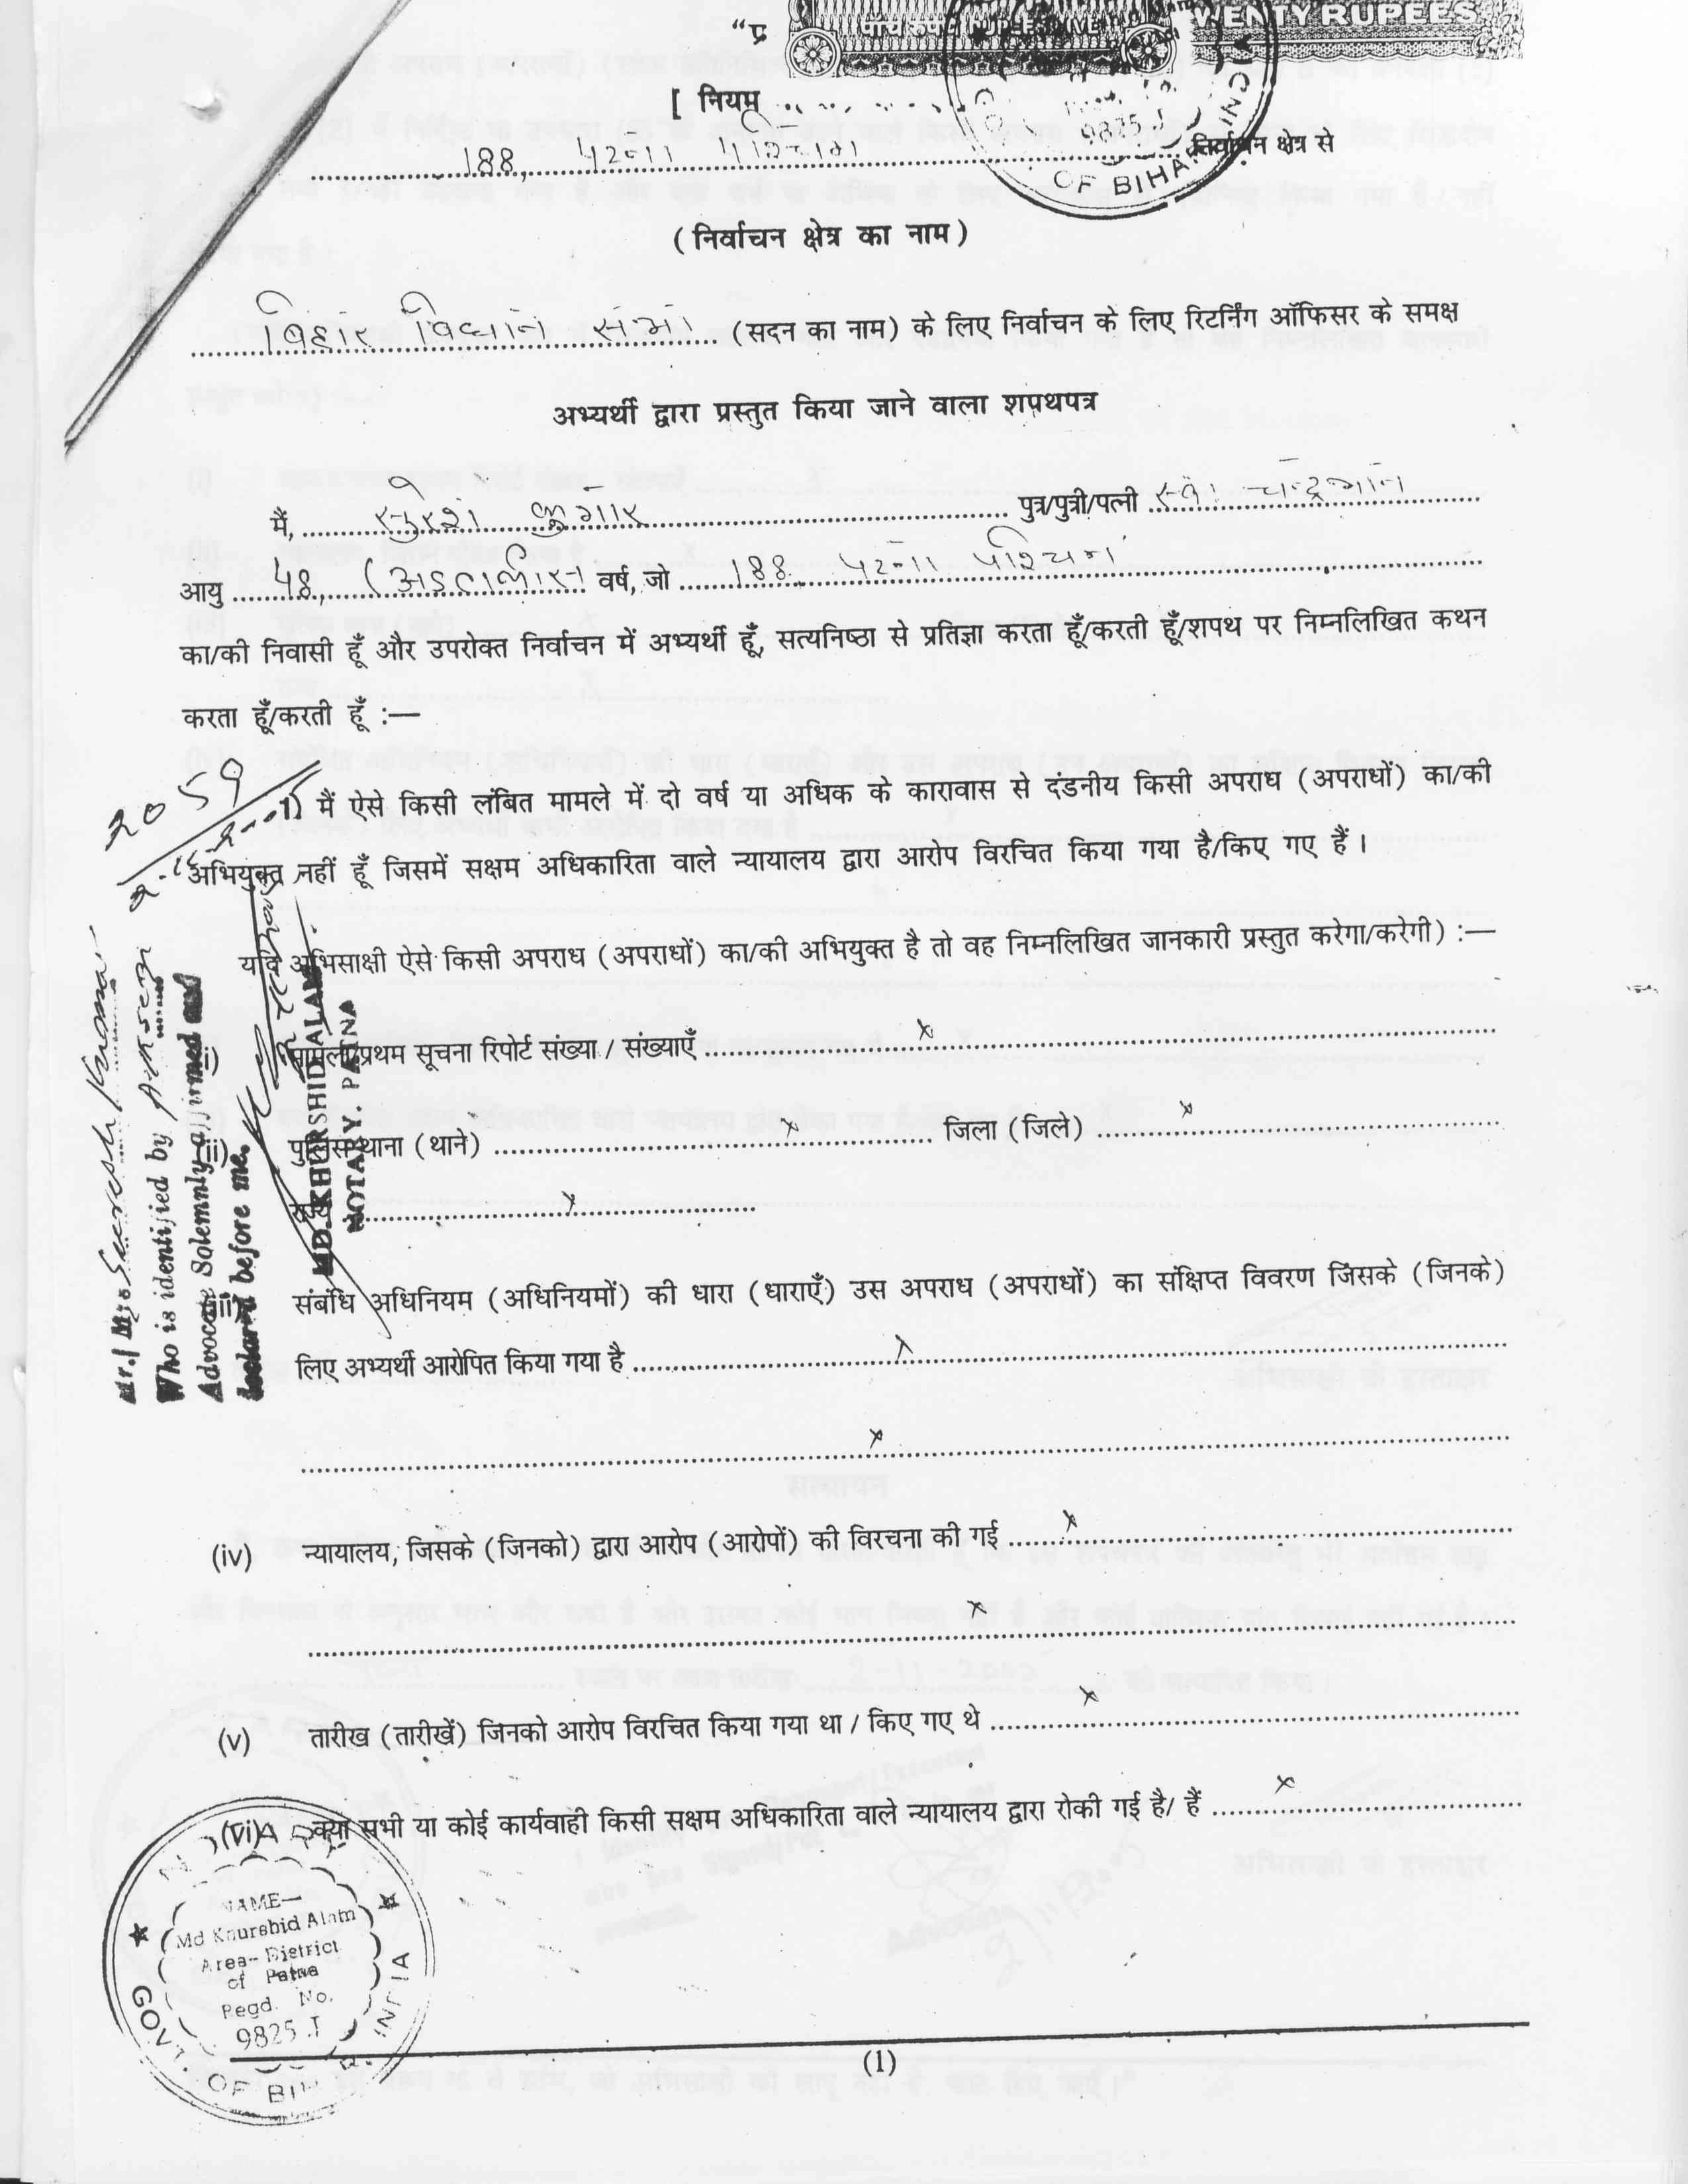 "प्र
पांच रुपये RUPEES FIVE
TWENTY RUPEES
[ नियम
9825 J
OF BIHAR INDIA
188, पटना पश्चिम निर्वाचन क्षेत्र से
(निर्वाचन क्षेत्र का नाम)
बिहार विधान सभा (सदन का नाम) के लिए निर्वाचन के लिए रिटर्निंग ऑफिसर के समक्ष
अभ्यर्थी द्वारा प्रस्तुत किया जाने वाला शपथपत्र
मैं, सुरेश कुमार पुत्र/पुत्री/पत्नी स्व०
आयु 48, (अड़तालीस) वर्ष, जो 188 पटना पश्चिम
का/की निवासी हूँ और उपरोक्त निर्वाचन में अभ्यर्थी हूँ, सत्यनिष्ठा से प्रतिज्ञा करता हूँ/करती हूँ/शपथ पर निम्नलिखित कथन
करता हूँ/करती हूँ :—
2059
1) मैं ऐसे किसी लंबित मामले में दो वर्ष या अधिक के कारावास से दंडनीय किसी अपराध (अपराधों) का/की
अभियुक्त नहीं हूँ जिसमें सक्षम अधिकारिता वाले न्यायालय द्वारा आरोप विरचित किया गया है/किए गए हैं ।
यदि अभिसाक्षी ऐसे किसी अपराध (अपराधों) का/की अभियुक्त है तो वह निम्नलिखित जानकारी प्रस्तुत करेगा/करेगी) :—
i) मामला/प्रथम सूचना रिपोर्ट संख्या / संख्याएँ x
ii) पुलिस थाना (थाने) x जिला (जिले) x
राज्य x
iii) संबंधि अधिनियम (अधिनियमों) की धारा (धाराएँ) उस अपराध (अपराधों) का संक्षिप्त विवरण जिसके (जिनके)
लिए अभ्यर्थी आरोपित किया गया है x
x
(iv) न्यायालय, जिसके (जिनको) द्वारा आरोप (आरोपों) की विरचना की गई x
x
(v) तारीख (तारीखें) जिनको आरोप विरचित किया गया था / किए गए थे x
(vi) क्या सभी या कोई कार्यवाही किसी सक्षम अधिकारिता वाले न्यायालय द्वारा रोकी गई है/ हैं x
Mr./ Mrs Suresh Kumar
Who is identified by
Advocate Solemnly affirmed and
before me.
MD. KHURSHID ALAM
NOTARY. PATNA
NOTARY
NAME—
Md Khurshid Alam
Area- District
of Patna
Regd. No.
9825 J
GOVT. OF BIHAR INDIA
(1)